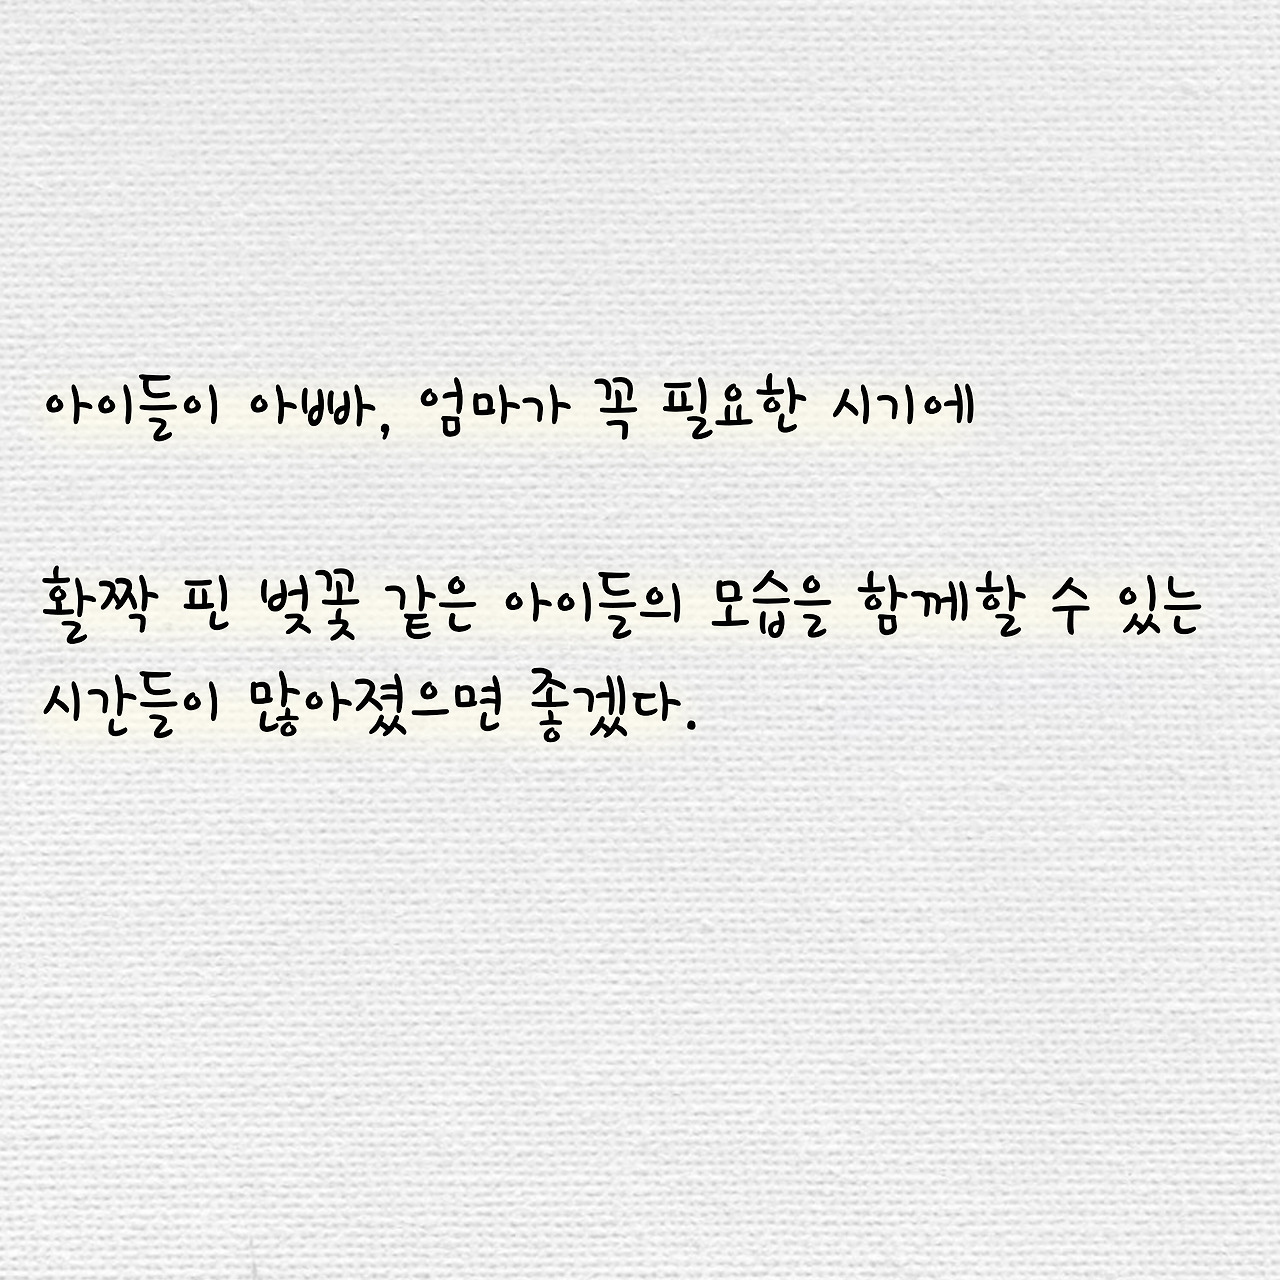 아이들이 아빠, 엄마가 꼭 필요한 시기에
활짝 핀 벚꽃 같은 아이들의 모습을 함께할 수 있는
시간들이 많아졌으면 좋겠다.